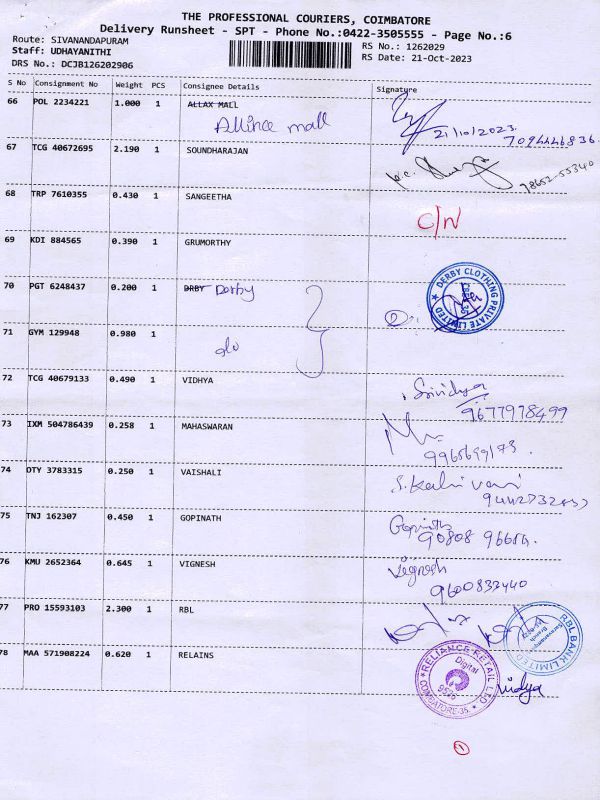 THE PROFESSIONAL COURIERS, COIMBATORE
Delivery Runsheet - SPT - Phone No.:0422-3505555 - Page No.:6
Route: SIVANANDAPURAM
Staff: UDHAYANITHI
DRS No.: DCJB126202906
RS No.: 1262029
RS Date: 21-Oct-2023
S No Consignment No Weight PCS Consignee Details Signature
66 POL 2234221 1.000 1 ALLAX MALL
Allince mall
21/10/2023.
7094446836
67 TCG 40672695 2.190 1 SOUNDHARAJAN
98652-55340
68 TRP 7610355 0.430 1 SANGEETHA
C/N
69 KDI 884565 0.390 1 GRUMORTHY
70 PGT 6248437 0.200 1 DRBY Derby
2
DERBY CLOTHING PRIVATE LIMITED
71 GYM 129948 0.980 1
do
72 TCG 40679133 0.490 1 VIDHYA
Srividya
9677978499
73 IXM 504786439 0.258 1 MAHASWARAN
74 OTY 3783315 0.250 1 VAISHALI
S. Kalaivani
75 TNJ 162307 0.450 1 GOPINATH
Gopinath
90808 96654.
76 KMU 2652364 0.645 1 VIGNESH
Vignesh
9600833440
77 PRO 15593103 2.300 1 RBL
RBL BANK LIMITED
Branch
78 MAA 571908224 0.620 1 RELAINS
RELIANCE RETAIL LTD.
Digital
COIMBATORE-35.
vidya
1